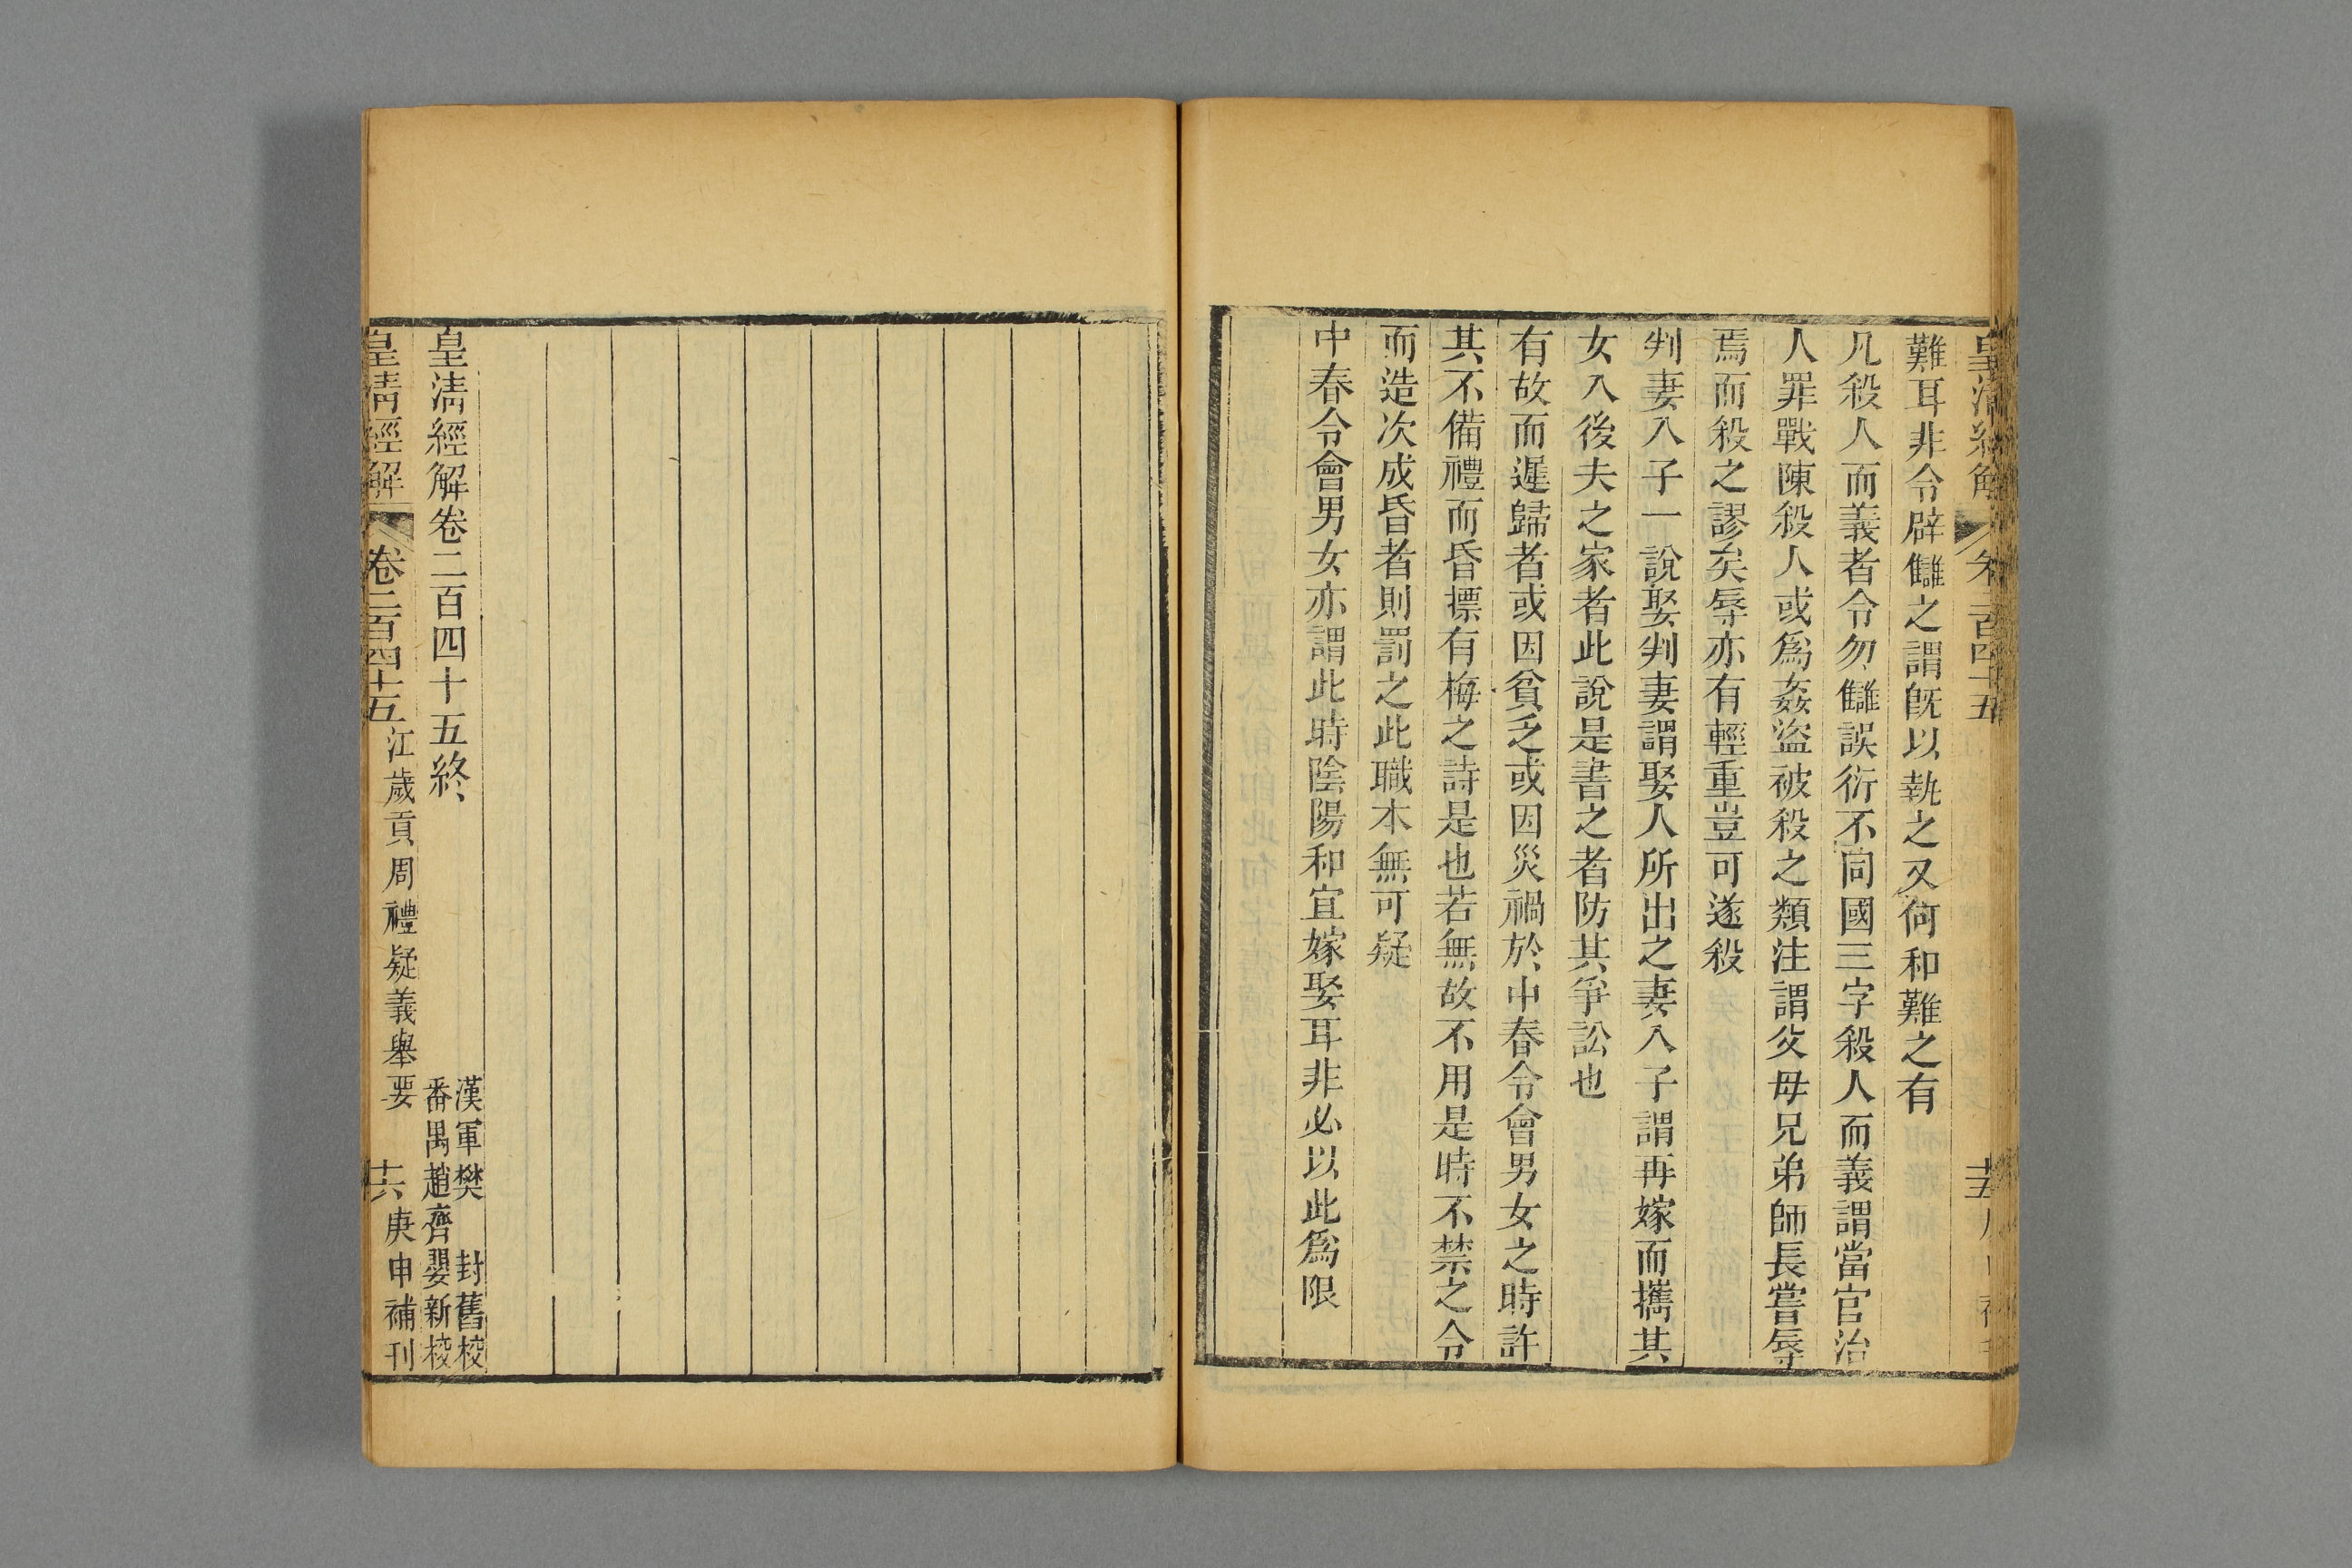 難耳非令辟讎之謂旣以執之又何和難之有
凡殺人而義者令勿讎誤衍不同國三字殺人而義謂當官治
人罪戰陳殺人或爲姦盜被殺之類注謂父母兄弟師長嘗辱
焉而殺之謬矣辱亦有輕重豈可遂殺
判妻入子一說娶判妻謂娶人所出之妻入子謂再嫁而攜其
女入後夫之家者此說是書之者防其爭訟也
有故而遲歸者或因貧乏或因災禍於中春令會男女之時許
其不備禮而昏摽有梅之詩是也若無故不用是時不禁之令
而造次成昏者則罰之此職本無可疑
中春令會男女亦謂此時陰陽和宜嫁娶耳非必以此爲限
皇清經解卷二百四十五終
漢軍樊 封舊校
番禺趙齊嬰新校
皇清經解 卷二百四十五 江歲貢周禮疑義舉要 十六 庚申補刊
皇清經解 卷二百四十五 十五